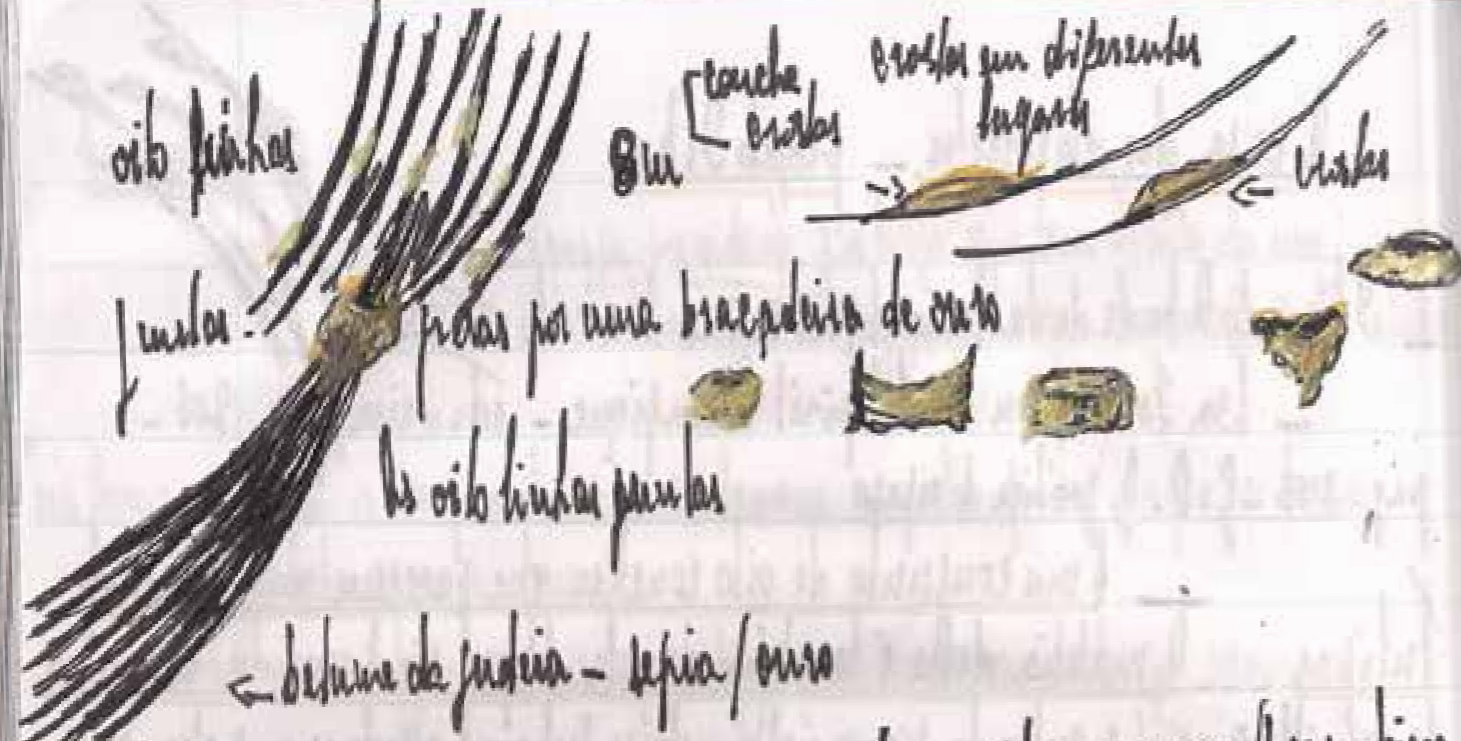 oito linhas
8 em
concha
crostas
crostas em diferentes
lugares
crostas
juntas. presas por uma braçadeira de ouro
As oito linhas juntas
betume da judeia - sépia / ouro